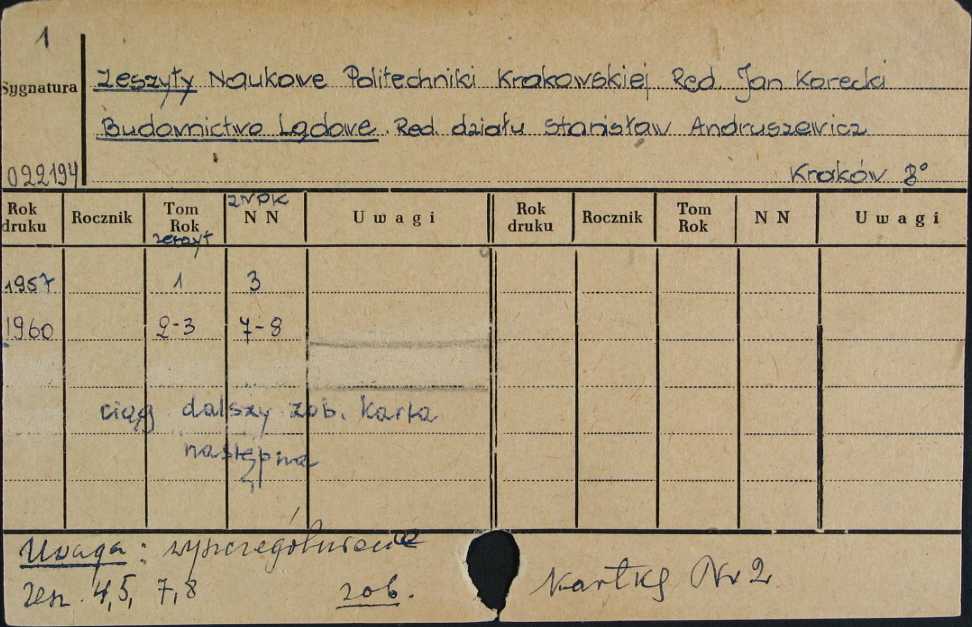 1
Sygnatura
Zeszyty Naukowe Politechniki Krakowskiej Red. Jan Korecki
Budownictwo Lądowe. Red. działu Stanisław Andruszewicz
022194
Kraków 8°
Rok druku Rocznik Tom Rok zeszyt ZNPK N N Uwagi Rok druku Rocznik Tom Rok N N Uwagi
1957 1 3
1960 2-3 7-8
ciąg dalszy zob. karta
następna
Uwaga: wyszczególnienie
zesz. 4, 5, 7, 8 zob. kartkę Nr 2